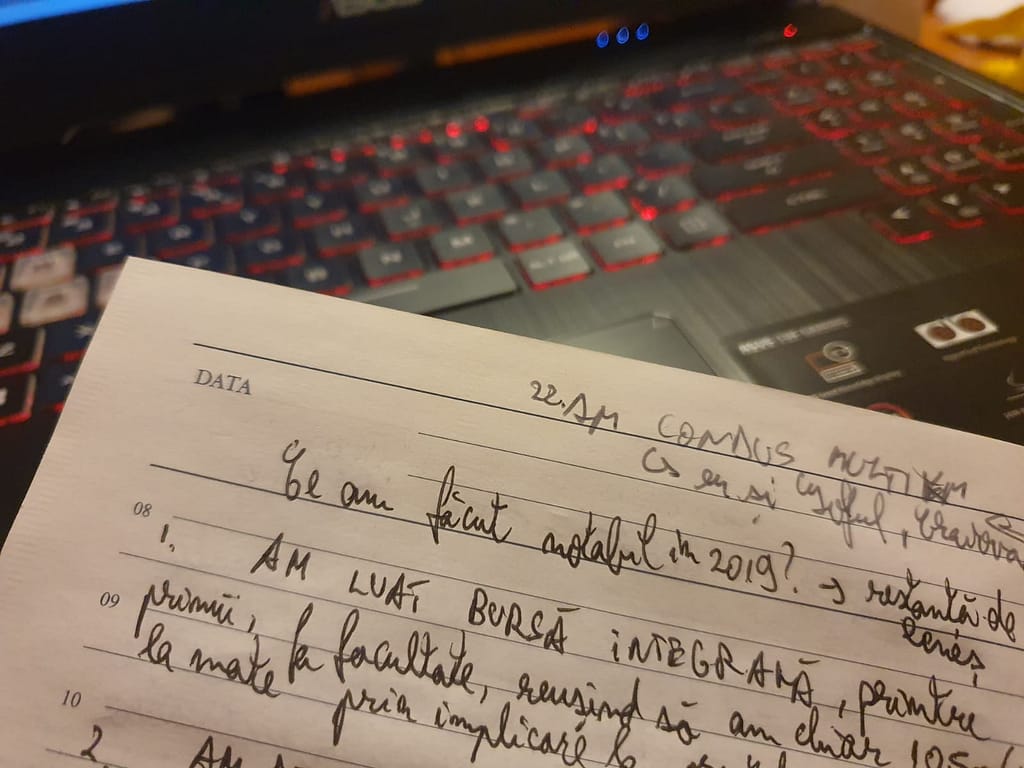 DATA
22. AM CONDUS MULTI KM
eu și cu șeful,
Ce am făcut notabil in 2019? → restanță de
leneș
08
1. AM LUAT BURSĂ INTEGRALĂ, printre
09
primii, la facultate, reușind să am chiar 105
la mate prin implicare la
10
2. AM